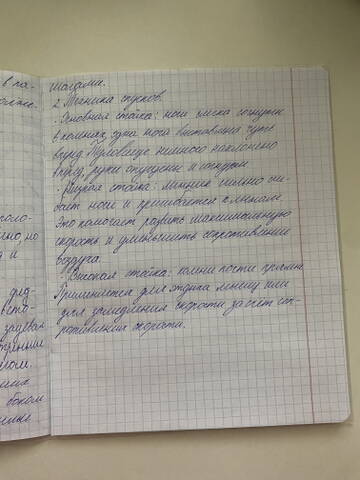 в ла-
шагами.
2. Техника спусков.
· Основная стойка: ноги слегка согнуты
в коленях, одна нога выставлена чуть
вперед. Туловище немного наклонено
вперед, руки опущены и согнуты.
· Низкая стойка: лыжник сильно сги-
бает ноги и пригибается к лыжам.
Это помогает развить максимальную
скорость и уменьшить сопротивление
воздуха.
· Высокая стойка: колени почти прямые
Применяется для отдыха мышц или
для замедления скорости за счет соп-
ротивления скорости.
но, но
д и
боком